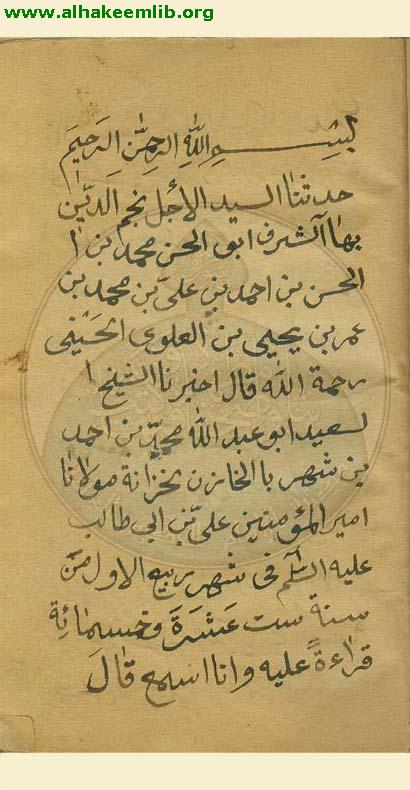 www.alhakeemlib.org
بسم الله الرحمن الرحيم
حدثنا السيد الاجل نجم الدين
بهاء الشرف ابو الحسن محمد بن ا
لحسن بن احمد بن على بن محمد بن
عمر بن يحيى بن العلوى الحسينى
رحمة الله قال اخبرنا الشيخ ا
لسعيد ابو عبد الله محمد بن احمد
بن شهريا الخازن بخزانة مولانا
امير المؤمنين على بن ابى طالب
عليه السلم فى شهر ربيع الاول من
سنة ست عشرة وخمسمائة
قراءة عليه وانا اسمع قال